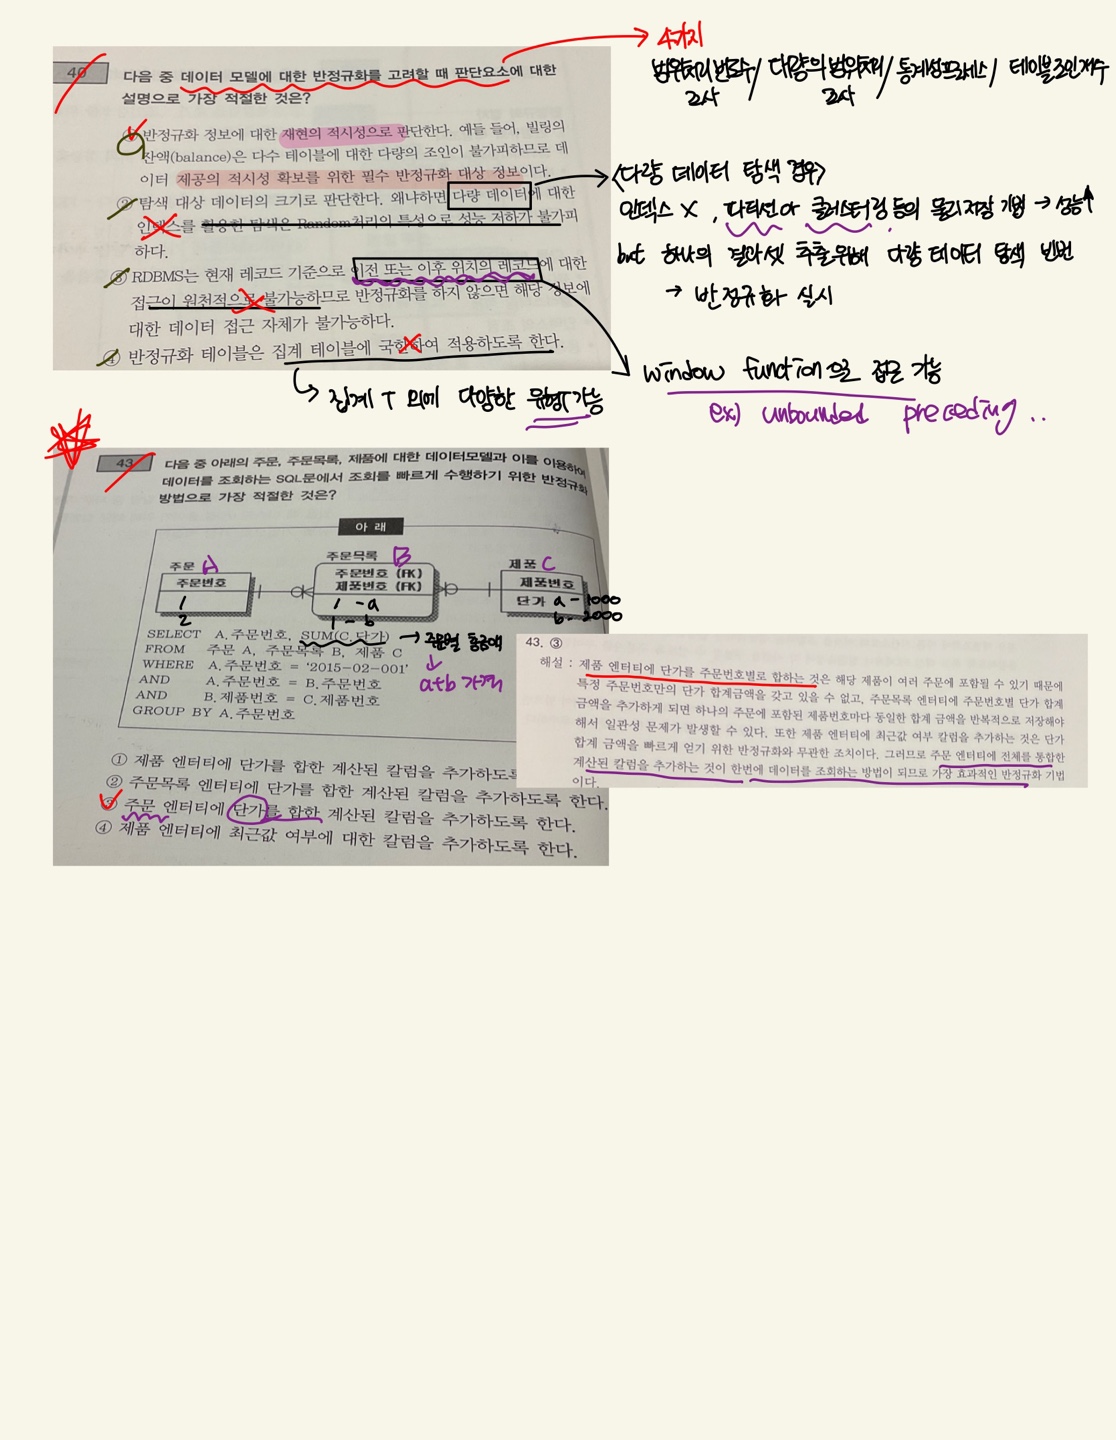 40
다음 중 데이터 모델에 대한 반정규화를 고려할 때 판단요소에 대한
설명으로 가장 적절한 것은?
① 반정규화 정보에 대한 재현의 적시성으로 판단한다. 예들 들어, 빌링의
잔액(balance)은 다수 테이블에 대한 다량의 조인이 불가피하므로 데
이터 제공의 적시성 확보를 위한 필수 반정규화 대상 정보이다.
② 탐색 대상 데이터의 크기로 판단한다. 왜냐하면 다량 데이터에 대한
인덱스를 활용한 탐색은 Random처리의 특성으로 성능 저하가 불가피
하다.
③ RDBMS는 현재 레코드 기준으로 이전 또는 이후 위치의 레코드에 대한
접근이 원천적으로 불가능하므로 반정규화를 하지 않으면 해당 정보에
대한 데이터 접근 자체가 불가능하다.
④ 반정규화 테이블은 집계 테이블에 국한하여 적용하도록 한다.
4가지
범위처리 빈도수/ 대량의 범위처리/ 통계성프로세스/ 테이블조인개수
조사 조사
<다량 데이터 탐색 경우>
인덱스 X, 파티션이나 클러스터링 등의 물리저장 기법 → 성능↑
but 하나의 결과셋 추출위해 다량 데이터 탐색 빈번
→ 반정규화 실시
window function으로 접근 가능
ex) unbounded preceding ..
집계 T 외에 다양한 유형T가능
43
다음 중 아래의 주문, 주문목록, 제품에 대한 데이터모델과 이를 이용하여
데이터를 조회하는 SQL문에서 조회를 빠르게 수행하기 위한 반정규화
방법으로 가장 적절한 것은?
아 래
주문 A
주문번호
1
2
주문목록 B
주문번호 (FK)
제품번호 (FK)
1 - a
1 - b
제품 C
제품번호
단가 a - 1000
b - 2000
SELECT A.주문번호, SUM(C.단가) → 주문별 총금액
FROM 주문 A, 주문목록 B, 제품 C
WHERE A.주문번호 = '2015-02-001'
AND A.주문번호 = B.주문번호
AND B.제품번호 = C.제품번호
GROUP BY A.주문번호
a+b 가격
① 제품 엔터티에 단가를 합한 계산된 칼럼을 추가하도록
② 주문목록 엔터티에 단가를 합한 계산된 칼럼을 추가하도록 한다.
③ 주문 엔터티에 단가를 합한 계산된 칼럼을 추가하도록 한다.
④ 제품 엔터티에 최근값 여부에 대한 칼럼을 추가하도록 한다.
43. ③
해설 : 제품 엔터티에 단가를 주문번호별로 합하는 것은 해당 제품이 여러 주문에 포함될 수 있기 때문에
특정 주문번호만의 단가 합계금액을 갖고 있을 수 없고, 주문목록 엔터티에 주문번호별 단가 합계
금액을 추가하게 되면 하나의 주문에 포함된 제품번호마다 동일한 합계 금액을 반복적으로 저장해야
해서 일관성 문제가 발생할 수 있다. 또한 제품 엔터티에 최근값 여부 칼럼을 추가하는 것은 단가
합계 금액을 빠르게 얻기 위한 반정규화와 무관한 조치이다. 그러므로 주문 엔터티에 전체를 통합한
계산된 칼럼을 추가하는 것이 한번에 데이터를 조회하는 방법이 되므로 가장 효과적인 반정규화 기법
이다.